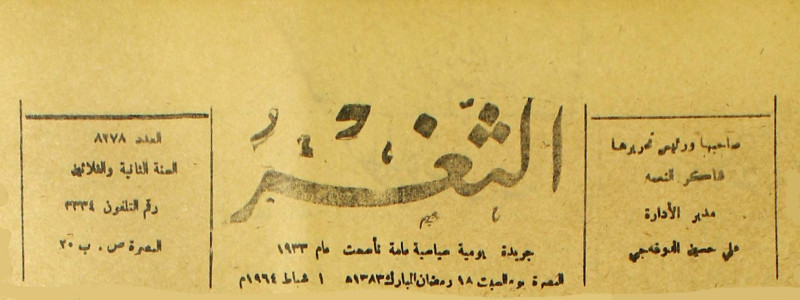 صاحبها ورئيس تحريرها
شاكر النعمه
مدير الأدارة
علي حسين
الثغر
جريدة يومية سياسية عامة تأسست عام ١٩٣٣
البصرة يوم السبت ١٨ رمضان المبارك ١٣٨٣ه ١ شباط ١٩٦٤م
العدد ٨٢٧٨
السنة الثانية والثلاثين
رقم التلفون ٣٣٣٤
البصرة ص . ب ٢٠